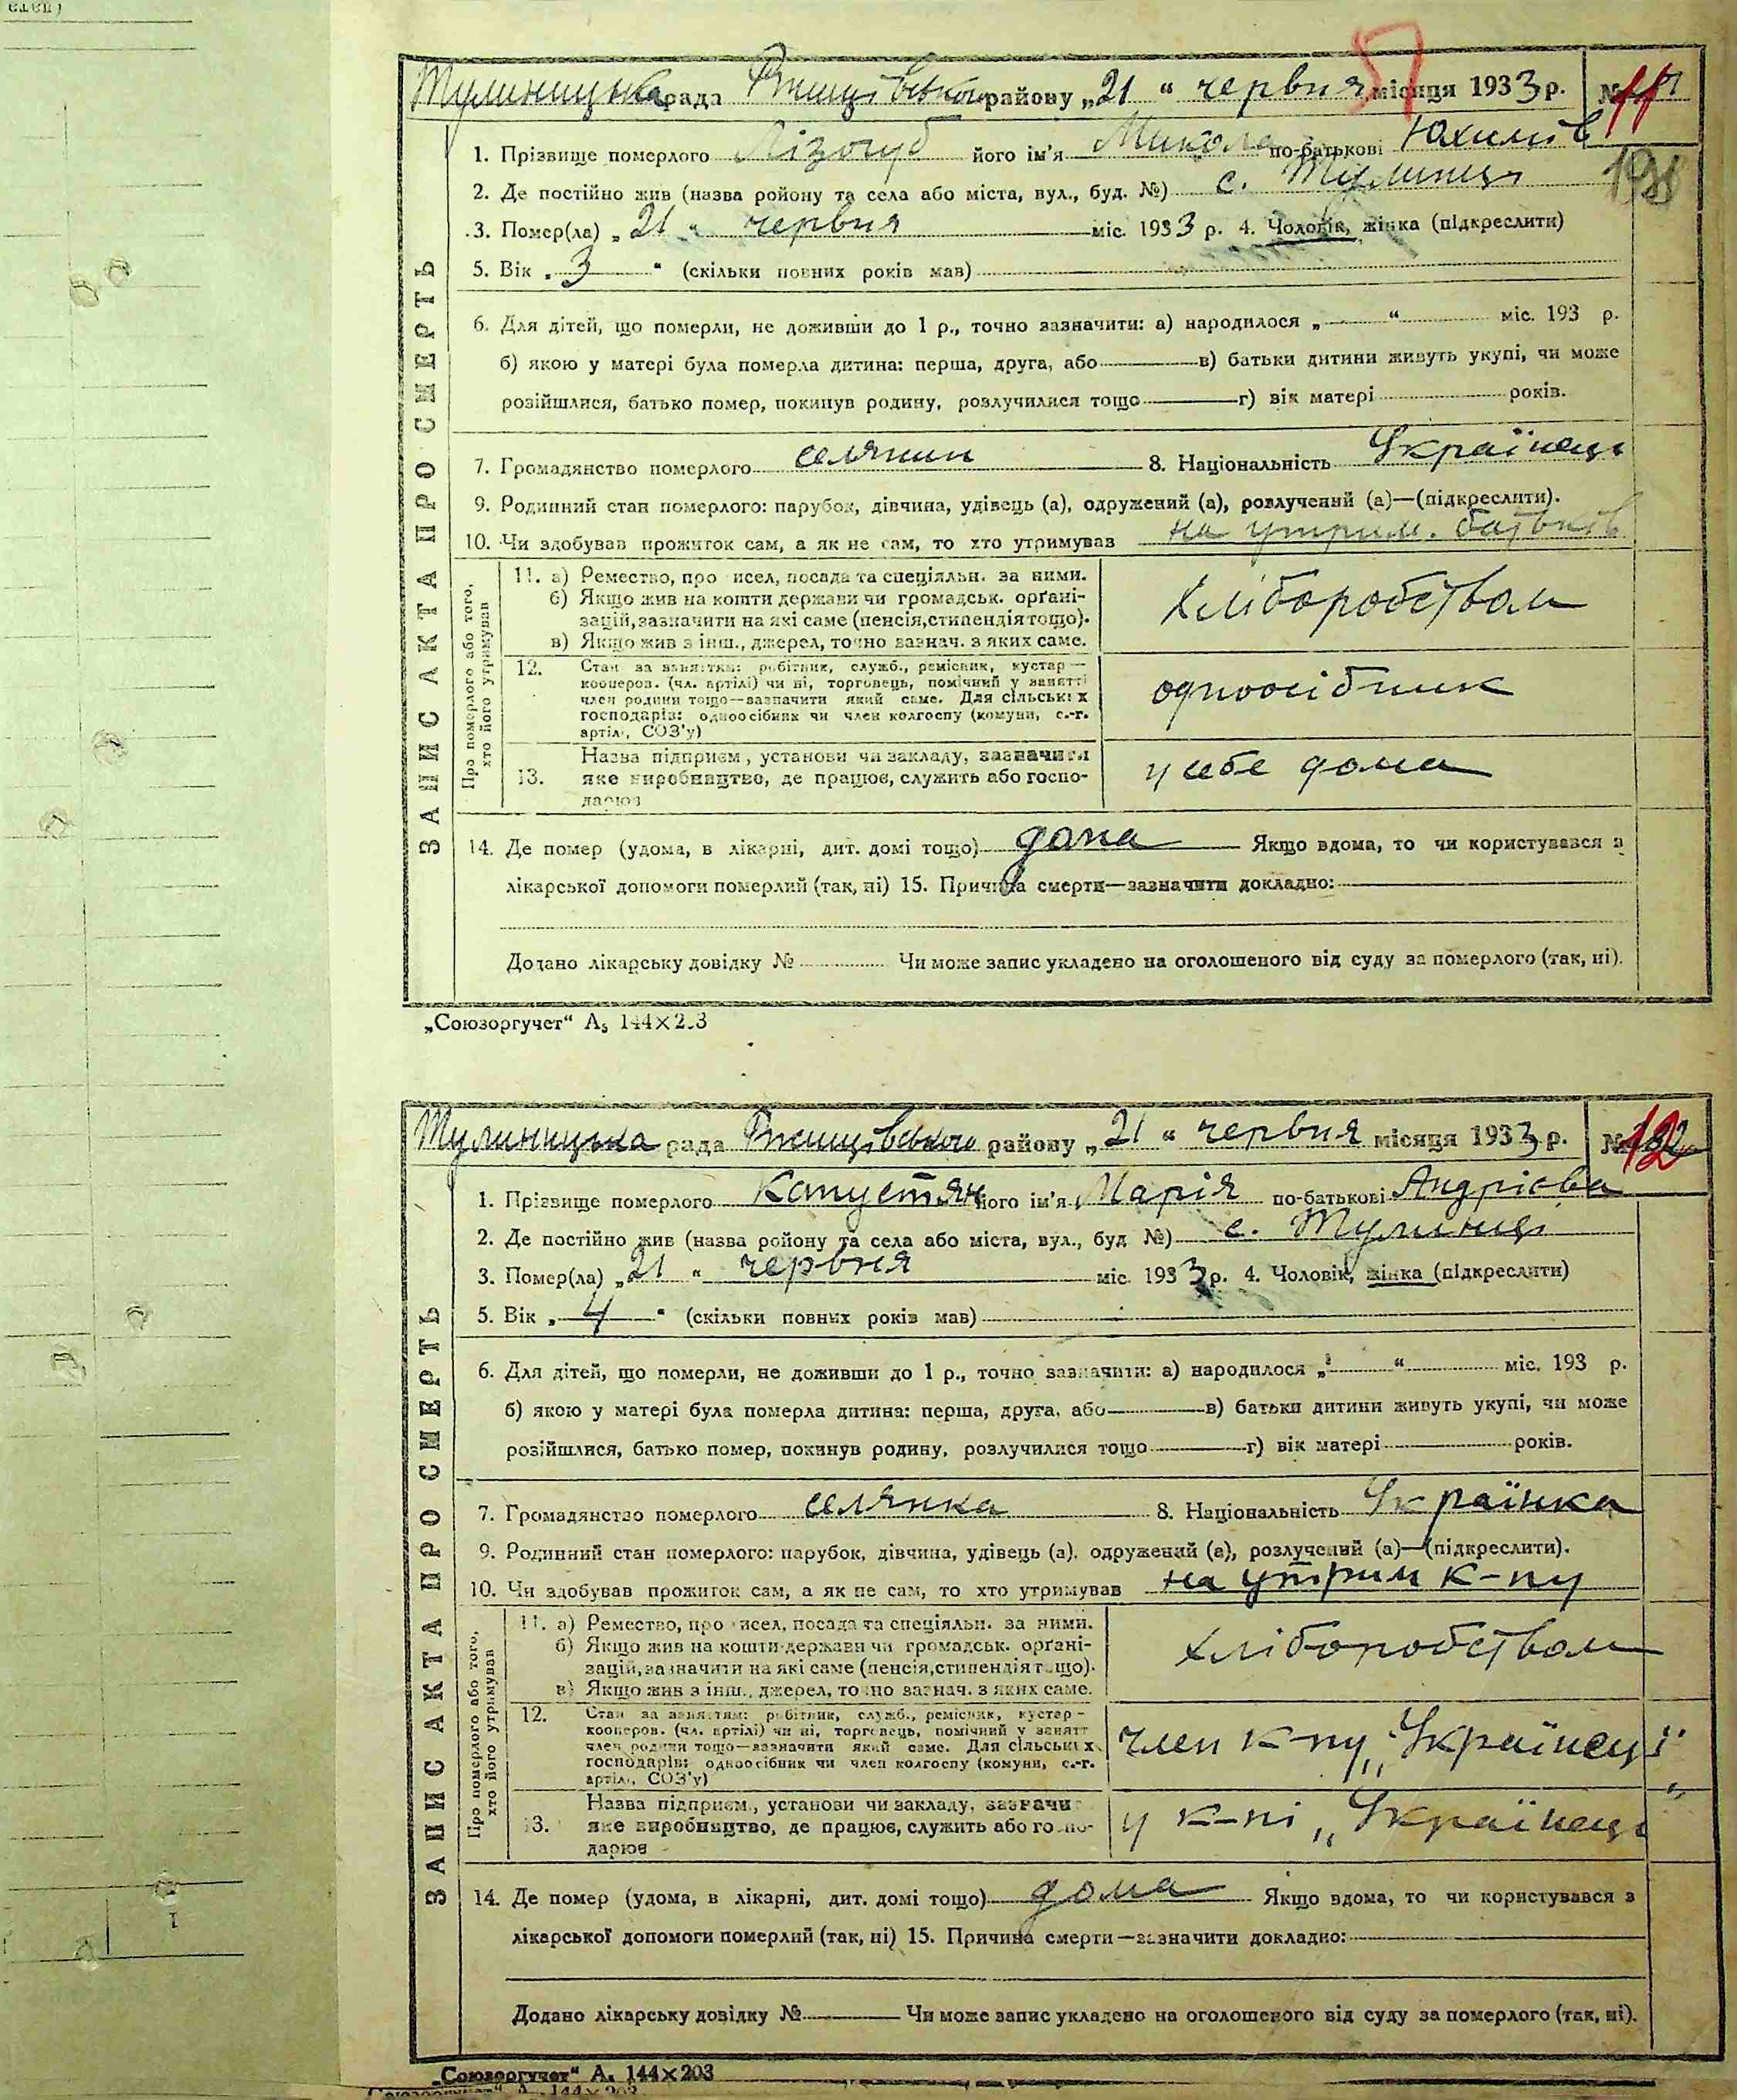 Тулиницька рада Ржищівського району „21 “ червня місяця 1933 р. № 11
1. Прізвище померлого Лізогуб його ім'я Микола по-батькові Юхимів
2. Де постійно жив (назва ройону та села або міста, вул., буд. №) с. Тулинці
3. Помер(ла) „ 21 “ червня міс. 1933 р. 4. Чоловік, жінка (підкреслити)
5. Вік „ 3 “ (скільки повних років мав)
6. Для дітей, що померли, не доживши до 1 р., точно зазначити: а) народилося „ “ міс. 193 р.
б) якою у матері була померла дитина: перша, друга, або в) батьки дитини живуть укупі, чи може
розійшлися, батько помер, покинув родину, розлучилися тощо г) вік матері років.
7. Громадянство померлого селянин 8. Національність Українець
9. Родинний стан померлого: парубок, дівчина, удівець (а), одружений (а), розлучений (а)—(підкреслити).
10. Чи здобував прожиток сам, а як не сам, то хто утримував на утрим. батьків
ЗАПИС АКТА ПРО СМЕРТЬ
Про померлого або того, хто його утримував
11. а) Ремество, про исел, посада та спеціяльн. за ними.
б) Якщо жив на кошти держави чи громадськ. орґані-
зацій, зазначити на які саме (пенсія, стипендія тощо).
в) Якщо жив з інш., джерел, точно зазнач. з яких саме.
хліборобством
12. Стан за заняттям: робітник, служб., ремісник, кустар—
кооперов. (чл. артілі) чи ні, торговець, помічний у занятті
член родини тощо—зазначити який саме. Для сільських
господарів: одноосібник чи член колгоспу (комуни, с.-г.
артіл., СОЗ'у)
одноосібник
13. Назва підприєм., установи чи закладу, зазначити
яке виробництво, де працює, служить або госпо-
дарює
у себе дома
14. Де помер (удома, в лікарні, дит. домі тощо) дома Якщо вдома, то чи користувався з
лікарської допомоги померлий (так, ні) 15. Причина смерти—зазначити докладно:
Додано лікарську довідку № Чи може запис укладено на оголошеного від суду за померлого (так, ні).
„Союзоргучет“ А5 144×203
Тулиницька рада Ржищівського району „21 “ червня місяця 1933 р. № 12
1. Прізвище померлого Капустян його ім'я Марія по-батькові Андрієва
2. Де постійно жив (назва ройону та села або міста, вул., буд №) с. Тулинці
3. Помер(ла) „21 “ червня міс. 1933 р. 4. Чоловік, жінка (підкреслити)
5. Вік „ 4 “ (скільки повних років мав)
6. Для дітей, що померли, не доживши до 1 р., точно зазначити: а) народилося „ “ міс. 193 р.
б) якою у матері була померла дитина: перша, друга, або в) батьки дитини живуть укупі, чи може
розійшлися, батько помер, покинув родину, розлучилися тощо г) вік матері років.
7. Громадянство померлого селянка 8. Національність Українка
9. Родинний стан померлого: парубок, дівчина, удівець (а), одружений (а), розлучений (а)—(підкреслити).
10. Чи здобував прожиток сам, а як не сам, то хто утримував на утрим к-пу
ЗАПИС АКТА ПРО СМЕРТЬ
Про померлого або того, хто його утримував
11. а) Ремество, про исел, посада та спеціяльн. за ними.
б) Якщо жив на кошти держави чи громадськ. орґані-
зацій, зазначити на які саме (пенсія, стипендія тощо).
в) Якщо жив з інш., джерел, точно зазнач. з яких саме.
хліборобством
12. Стан за заняттям: робітник, служб., ремісник, кустар—
кооперов. (чл. артілі) чи ні, торговець, помічний у занятт
член родини тощо—зазначити який саме. Для сільських
господарів: одноосібник чи член колгоспу (комуни, с.-г.
артіл., СОЗ'у)
член к-пу „Українець“
13. Назва підприєм., установи чи закладу, зазначи
яке виробництво, де працює, служить або госпо-
дарює
у к-пі „Українець“
14. Де помер (удома, в лікарні, дит. домі тощо) дома Якщо вдома, то чи користувався з
лікарської допомоги померлий (так, ні) 15. Причина смерти—зазначити докладно:
Додано лікарську довідку № Чи може запис укладено на оголошеного від суду за померлого (так, ні).
„Союзоргучет“ А. 144×203